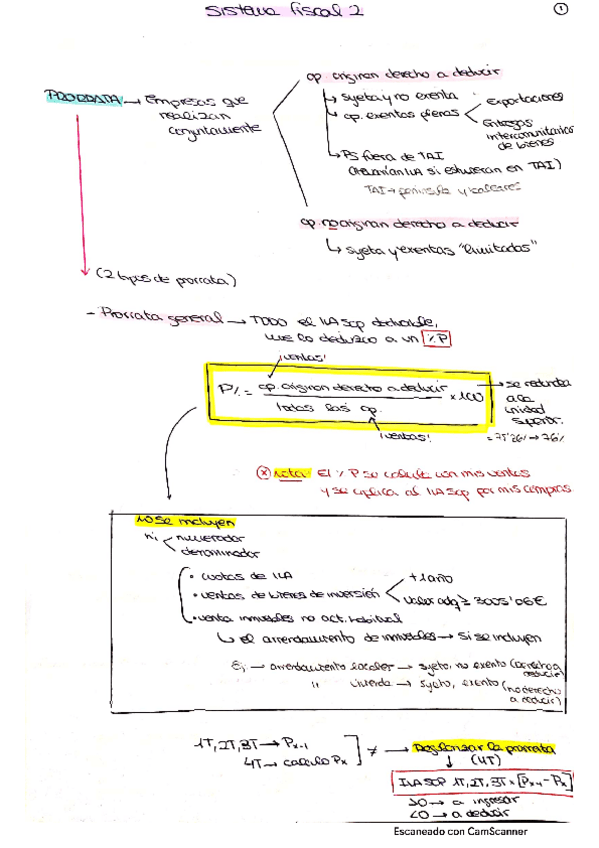 Sistema fiscal 2
1
PRORRATA → Empresas que realizan conjuntamente
op. originan derecho a deducir
↳ sujeta y no exenta
↳ op. exentas plenas < Exportaciones
Entregas intercomunitarias de bienes
↳ PS fuera de TAI
(tendrían IVA si estuvieran en TAI)
TAI → península y baleares
op. no originan derecho a deducir
↳ sujeta y exentas "limitadas"
(2 tipos de prorrata)
- Prorrata general → TODO el IVA sop deducible,
me lo deduzco a un %P
¡ventas!
P% = op. originan derecho a deducir / todas las op. × 100
¡ventas!
→ se redondea a la unidad superior.
= 75'26% → 76%
nota: El %P se calcula con mis ventas
y se aplica al IVA sop por mis compras
NO se incluyen
ni < numerador
denominador
• cuotas de IVA
• ventas de bienes de inversión < +1 año
valor adq ≥ 3005'06€
• venta inmuebles no act. habitual
↳ el arrendamiento de inmuebles → si se incluyen
Ej → arrendamiento locales → sujeto, no exento (derecho a deducir)
" vivienda → sujeto, exento (no derecho a deducir)
1T, 2T, 3T → Px-1
4T → calculo Px
≠ → Regularizar la prorrata
↓ (4T)
IVA SOP 1T, 2T, 3T × [Px-1 - Px]
>0 → a ingresar
<0 → a deducir
Escaneado con CamScanner